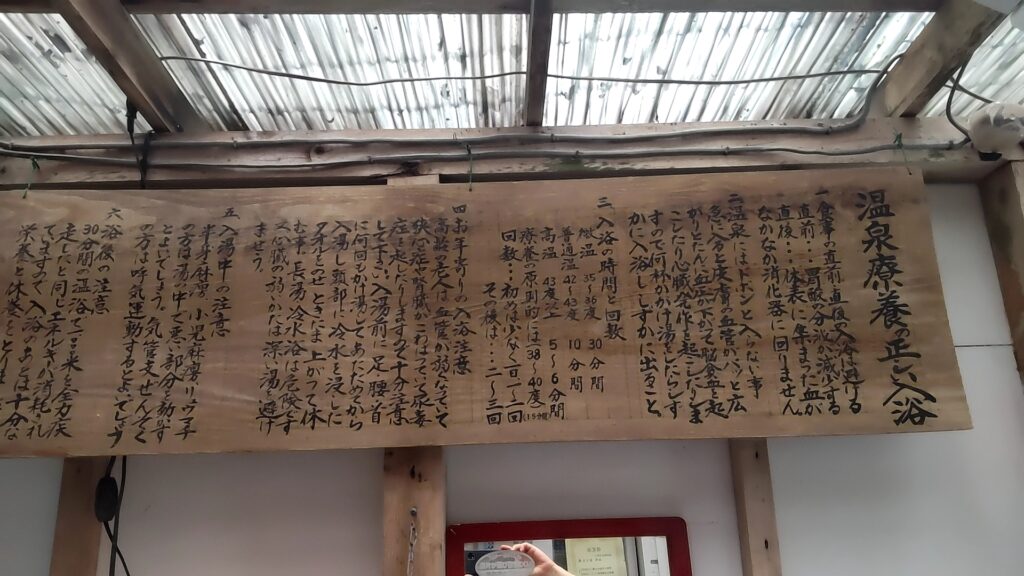 温泉療養の正しい入浴
一 食事の直前、直後の入浴は避ける
直前・・・胃酸分泌が減少する
直後・・・体表に集まった血が
なかなか消化器に回りません
二 温泉にはドボンと入らない事
急に入ると皮膚の血管がパッと広
がりどんと血圧が下がって脳貧血を起
こしたり心臓発作を起こしたりしま
すので何杯かかけ湯をしたらしず
かに入浴し、しずかに出ること
三 入浴の時間と回数
微温 35〜36度 30分間
普通温 42〜43度 10分間
高温 43度以上 5〜6分間
療養の原則的には38〜40度(15分間)
回数・・・初めは少なく一日一〜二回
その後は・・・二〜三回
四 お年寄りの入浴の注意
高齢の老人は血管が弱くなってて
に何回もかけ湯をしてあたたまってから
入湯し頭部に冷水を浸した
タオルをのせときどき上がって休
む事、長湯、冷水浴は危険です
又心臓の弱いかたは深い湯を避け
ませう。
五 入湯中の注意
半身麻痺、小児麻痺、リウマチ
の方は湯の中で悪い部分を動かす
とよいでしょう。気管支ぜんそく
の方は呼気運動するとよいでせう
六 浴後の注意
30分間の温浴で
走したと同じエネルギーが消耗され
てますので、入浴のあとは十分な
栄養と休養をとり